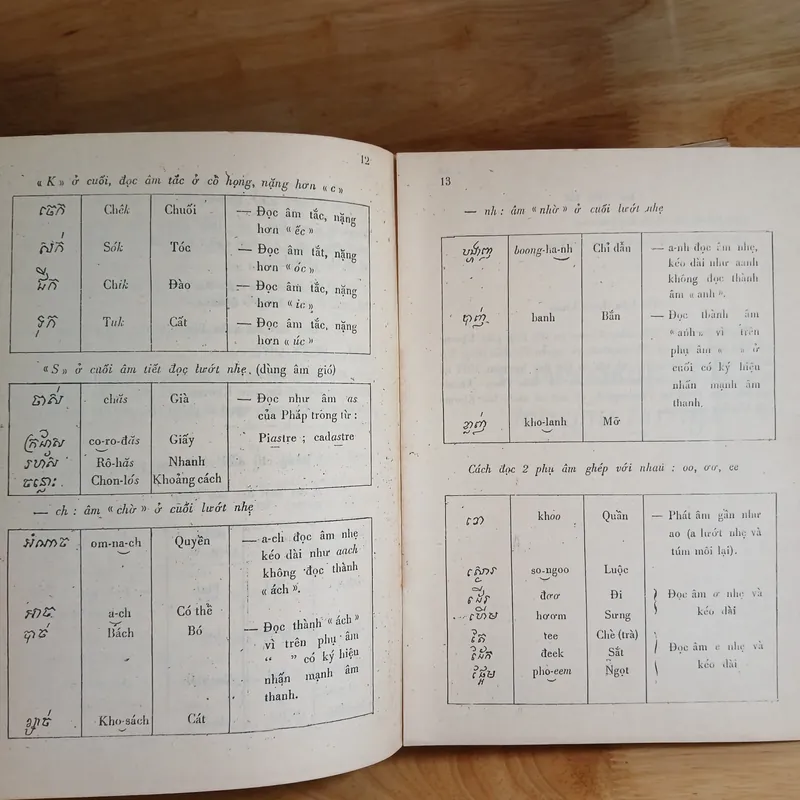 12
«K» ở cuối, đọc âm tắc ở cổ họng, nặng hơn «c»
ចេក Chêk Chuối — Đọc âm tắc, nặng
hơn «ếc»
សក់ Sók Tóc — Đọc âm tắt, nặng
hơn «óc»
ជីក Chik Đào — Đọc âm tắc, nặng
hơn «ic»
Tuk Cất — Đọc âm tắc, nặng
hơn «úc»
«S» ở cuối âm tiết đọc lướt nhẹ. (dùng âm gió)
ចាស់ chăs Già — Đọc như âm as
của Pháp trong từ :
ក្រដាស co-ro-đăs Giấy Piastre ; cadastre
រហ័ស Rô-hăs Nhanh
ចន្លោះ Chon-lós Khoảng cách
— ch : âm «chờ» ở cuối lướt nhẹ
អំណាច om-na-ch Quyền — a-ch đọc âm nhẹ
kéo dài như aach
không đọc thành
«ách».
អាច a-ch Có thể
បាច់ Bách Bó — Đọc thành «ách»
vì trên phụ âm
“ ” có ký hiệu
nhấn mạnh âm
thanh.
ខ្សាច់ Kho-sách Cát
13
— nh : âm «nhờ» ở cuối lướt nhẹ
បង្ហាញ boong-ha-nh Chỉ dẫn — a-nh đọc âm nhẹ,
kéo dài như aanh
không đọc thành
âm «anh».
បាញ់ banh Bắn — Đọc thành âm
«anh» vì trên
phụ âm « » ở
cuối có ký hiệu
nhấn mạnh âm
thanh.
ខ្លាញ់ kho-lanh Mỡ
Cách đọc 2 phụ âm ghép với nhau : oo, ơơ, ee
ខោ khoo Quần — Phát âm gần như
ao (a lướt nhẹ và
túm môi lại).
ស្ងោរ so-ngoo Luộc
ដើរ đơơ Đi Đọc âm ơ nhẹ và
ហើម hơơm Sưng kéo dài
តែ tee Chè (trà)
ដែក đeek Sắt Đọc âm e nhẹ và
ផ្អែម pho-eem Ngọt kéo dài